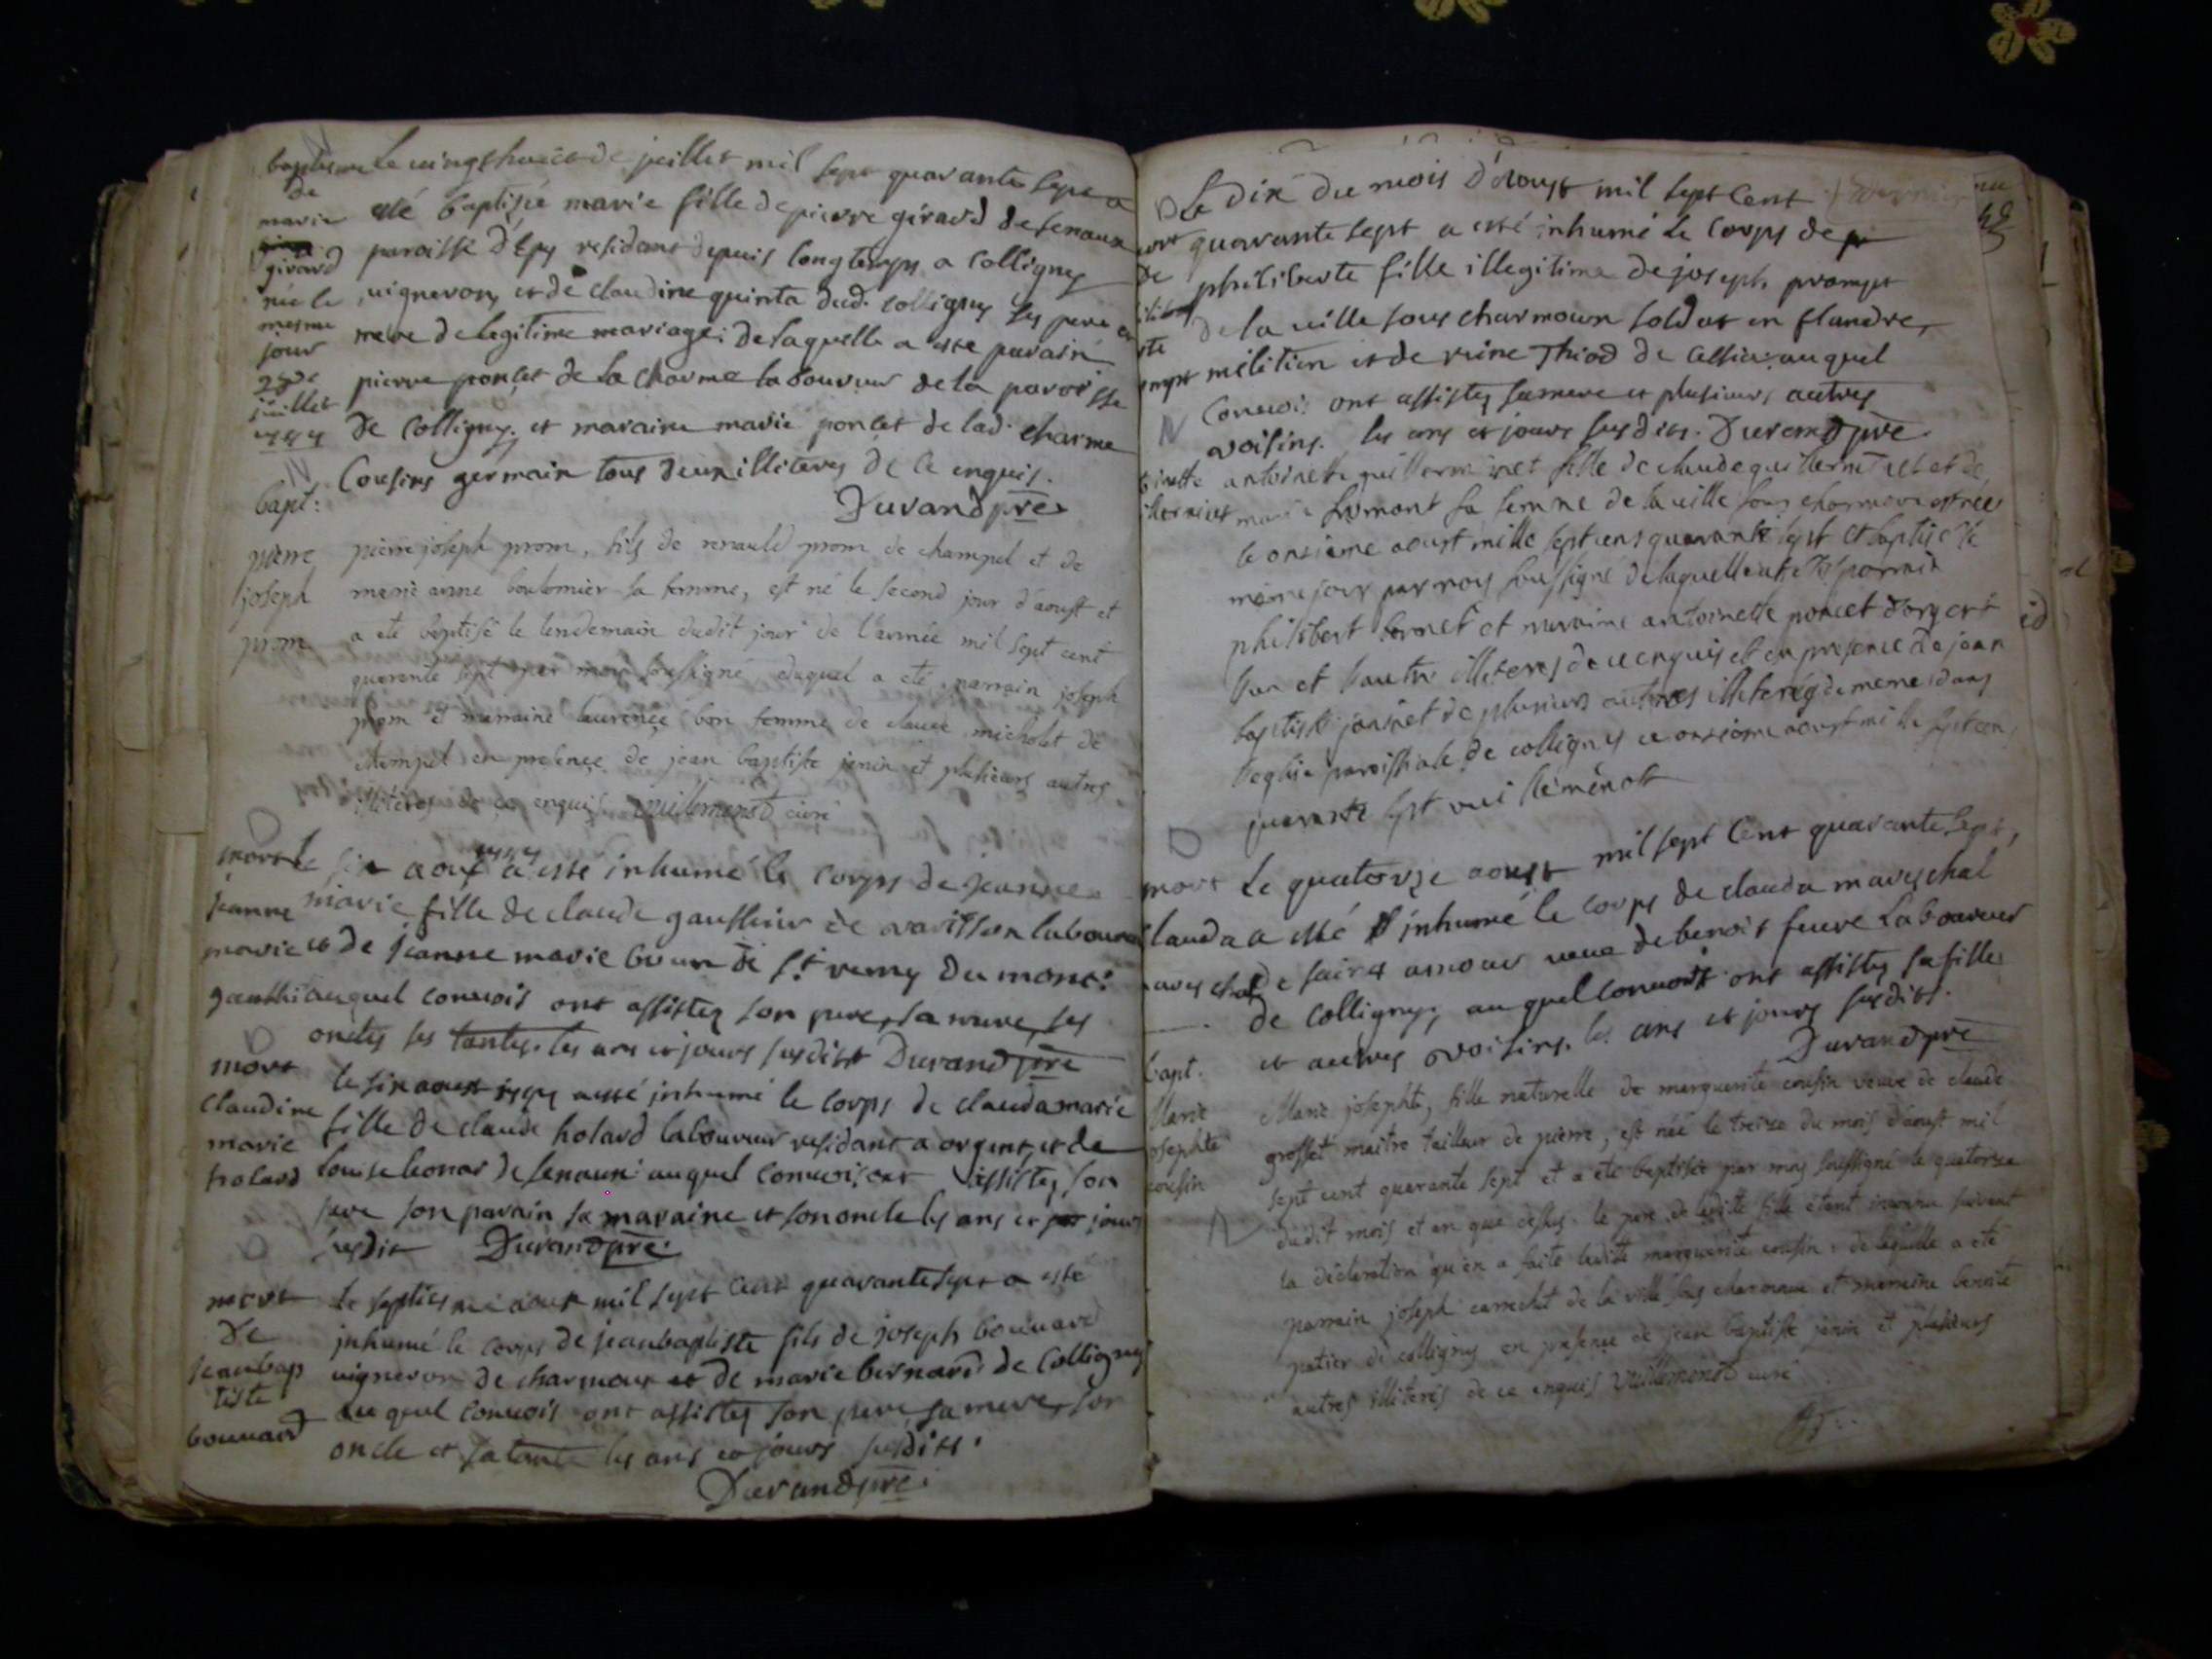 baptesme Le uingt huict de juillet mil sept quarante sept a
de
marie esté baptisée marie fille de pierre girard de senaux
girard paroisse d'Epy residant depuis longtemps a Colligny
née le uigneron, et de claudine quinta dud. Colligny ses pere et
mesme mere de legitime mariage: de laquelle a esté parain
jour
28e pierre ponset de la charme laboureur de la paroisse
juillet
1747 de Colligny. et maraine marie ponset de lad. charme
Cousins germain tous deux illiterez de ce enquis.
Durand pre
bapt:
pierre pierre joseph prom, fils de renauld prom de champel et de
joseph marie anne boulomier sa femme, est né le second jour d'aoust et
prom a eté baptisé le lendemain dudit jour de l'année mil sept cent
quarante sept par moy soussigné duquel a eté parrain joseph
prom et marraine laurence bon femme de claude micholet de
champel en presence de jean baptiste janin et plusieurs autres
illiteres de ce enquis vuillemenot curé
mort Le six aoust 1747 a esté inhumé le corps de jeanne
jeanne marie fille de claude gauthier de laboureur
marie et de jeanne marie brun de st remy du mont:
gauthi auquel conuois ont assistez son pere, sa mere, ses
oncles ses tantes. les ans et jours susdist Durand pre
mort le six aoust 1747 a esté inhumé le corps de clauda marie
claudine fille de claude holard laboureur residant a orgent, et de
marie
holard louise leonar de senaux: auquel conuois ont assistez son
pere son parain sa maraine et son oncle les ans et jours
susdit Durand pre.
mort Le septiesme aoust mil sept cent quarante sept a esté
de inhumé le corps de jean baptiste fils de joseph bouuard
jean bap uigneron de charmoux et de marie bernard de Colligny
tiste auquel conuois ont assistez son pere, sa mere, son
bouuard oncle et sa tante les ans et jours susdits.
Durand pre.
Le dix du mois d'aoust mil sept Cent
quarante sept a esté inhumé le corps de
de philiberte fille illegitime de joseph prompt
de la uille sous charmoux soldat en flandre,
militien et de reine Thiod de Cessia: auquel
Conuois ont assistez sa mere et plusieurs autres
voisins. les ans et jours susdits. Durand pre.
antoinette guillerminet fille de claude guillerminet et de
marie fromont sa femme de la uille sous charmoux est née
le onzieme aoust mille sept cens quarante sept et baptisé le
meme jour par moy soussigné de laquelle a eté parrain
philibert bornet et marraine antoinette poncet d'orgent
l'un et l'autre illeteres de ce enquis et en presence de jean
baptiste janin et de plusieurs autres illeterés de meme dans
l'eglise paroissiale de colligny ce onzieme aoust mille sept cens
quarante sept vuillemenot
mort Le quatorze aoust mil sept Cent quarante sept,
clauda a esté inhumé le corps de clauda mareschal
mareschal de saint amour ueue de benoit feure laboureur
de Colligny, auquel conuois ont assistez sa fille
et autres voisins. les ans et jours susdits.
Durand pre
bapt.
Marie Marie josephte, fille naturelle de marguerite cousin veuve de claude
josephte grosset maitre tailleur de pierre, est née le treize du mois d'aoust mil
cousin sept cent quarante sept et a eté baptisée par moy soussigné le quatorze
dudit mois et an que dessus. le pere de ladite fille étant inconnu suivant
la déclaration qu'en a faite ladite marguerite cousin: de laquelle a eté
parrain joseph de la ville sous charmoux et marraine benoite
patier de colligny en presence de jean baptiste janin et plusieurs
autres illiterés de ce enquis Vuillemenot curé